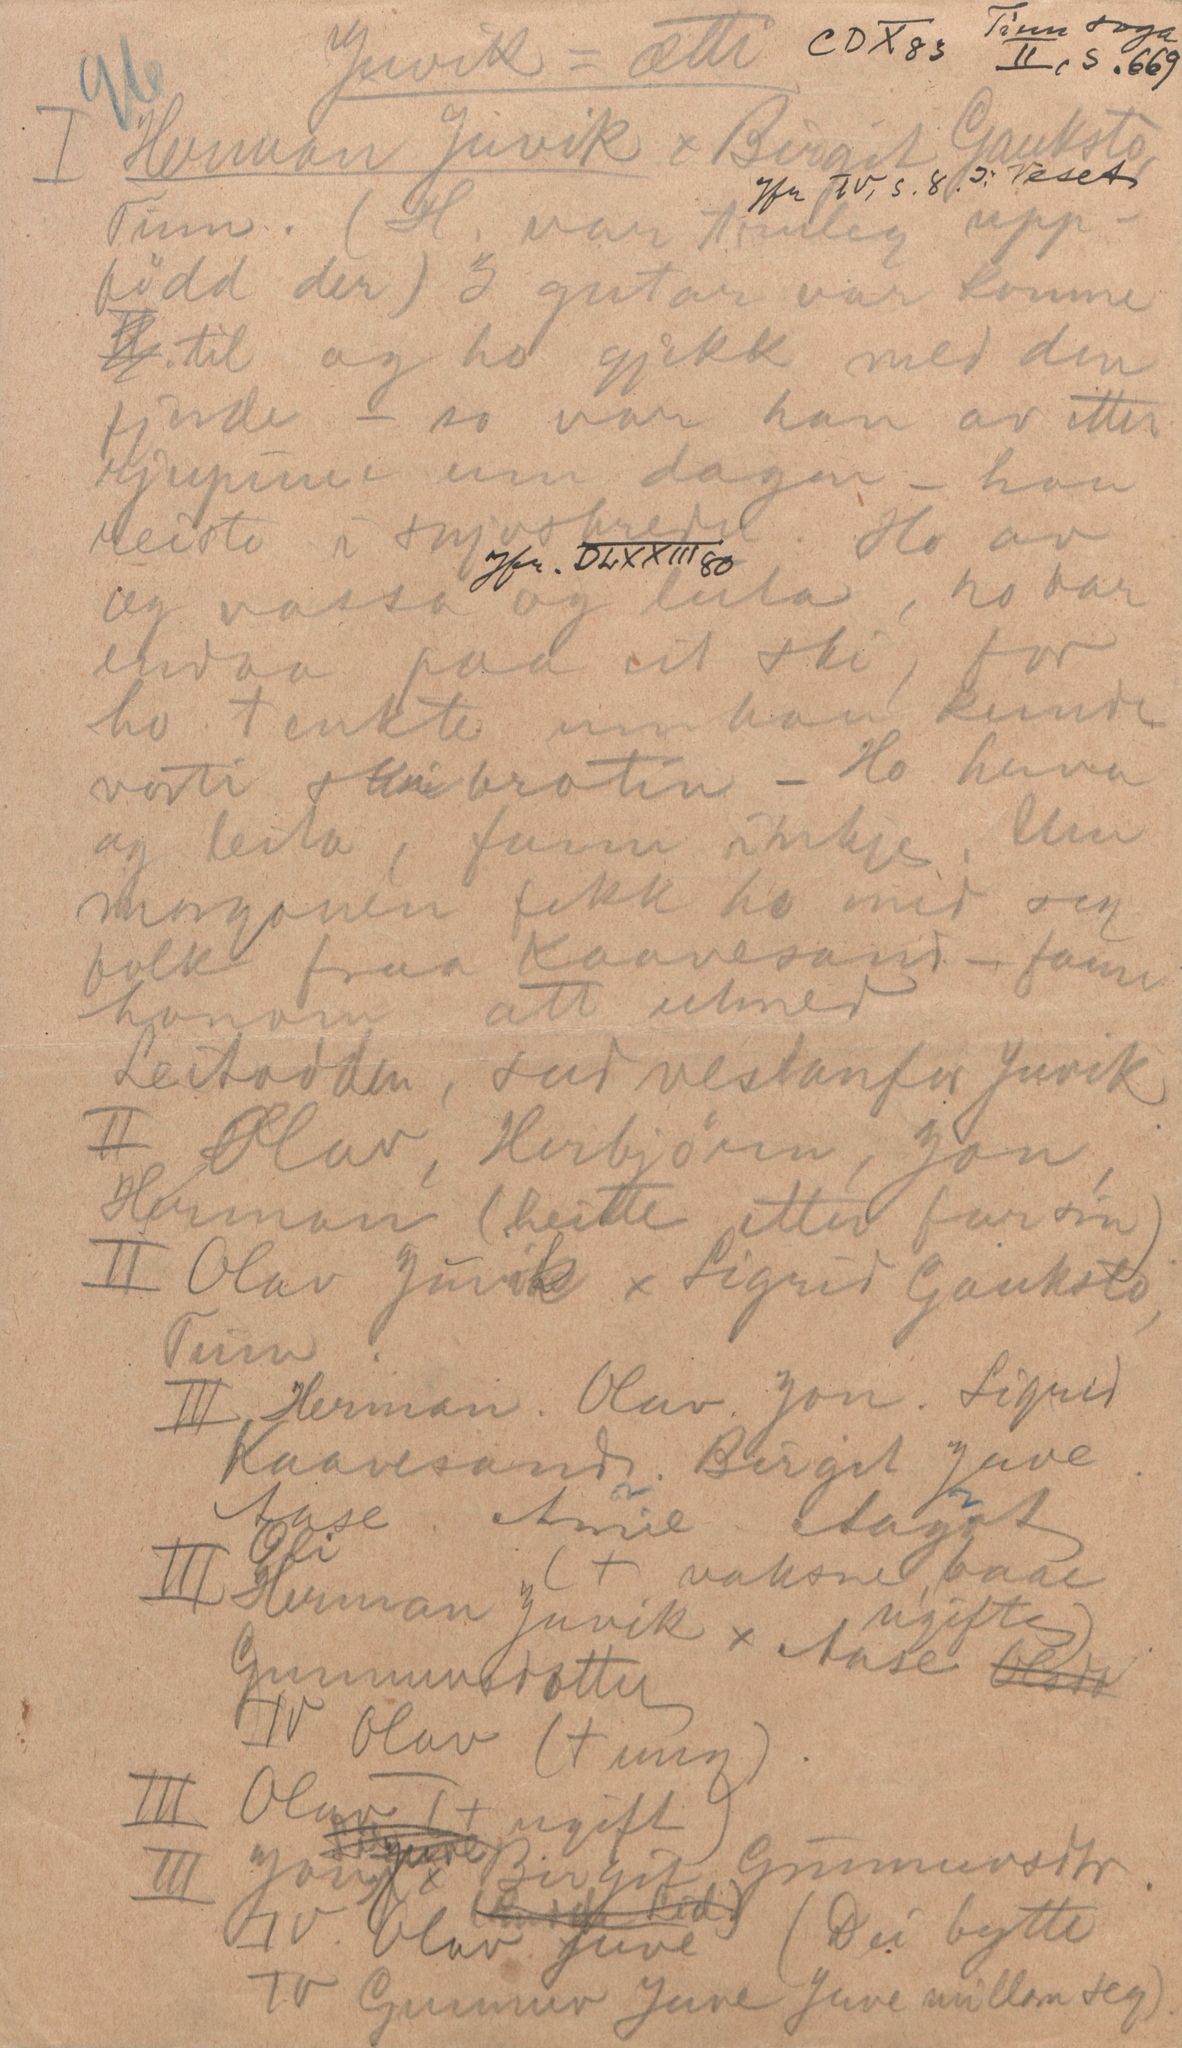 96
Juvik = ætti
CDX 83 Tinn soga
II, s. 669
I Herman Juvik x Birgit Gauksto,
Jfr IV, s. 8. J. Veset
Tinn. (H. var truleg upp-
född der) 3 gutar var komne
til og ho gjekk med den
fjorde - so var han av etter
rjupune um dagen - han
reiste i snjoskreda. Ho av
Jfr. DLXXIII 80
og vassa og leita, ho bar
endaa paa eit ski, for
ho tenkte um han kunde
vorti skibrotin - Ho huva
og leita, funn inkje. Um
morgonen fekk ho med seg
folk fraa Kaavesand - fann
honom att utmed
Leitodden, sud vestanfor Juvik
II Olav, Herbjörn, Jon,
Herman (heitte etter far sin)
II Olav Juvik x Sigrid Gauksto,
Tinn.
III Herman. Olav. Jon. Sigrid
Kaavesand. Birgit Juve.
Aase. Anne. Aagot
Oli (+ vaksne, baae
ugifte)
III Herman Juvik x Aase Olsdr
Gunnuvsdotter
IV Olav (+ ung).
III Olav (+ ugift)
III Jon x Birgit Gunnuvsdtr.
IV. Olav Juve (Dei bytte
IV Gunnuv Juve Juve millom seg).